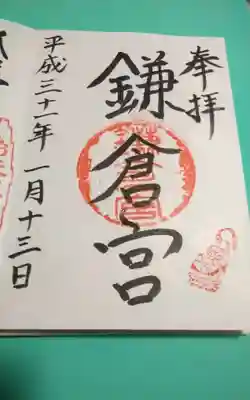 奉拝
鎌倉宮
平成三十一年一月十三日